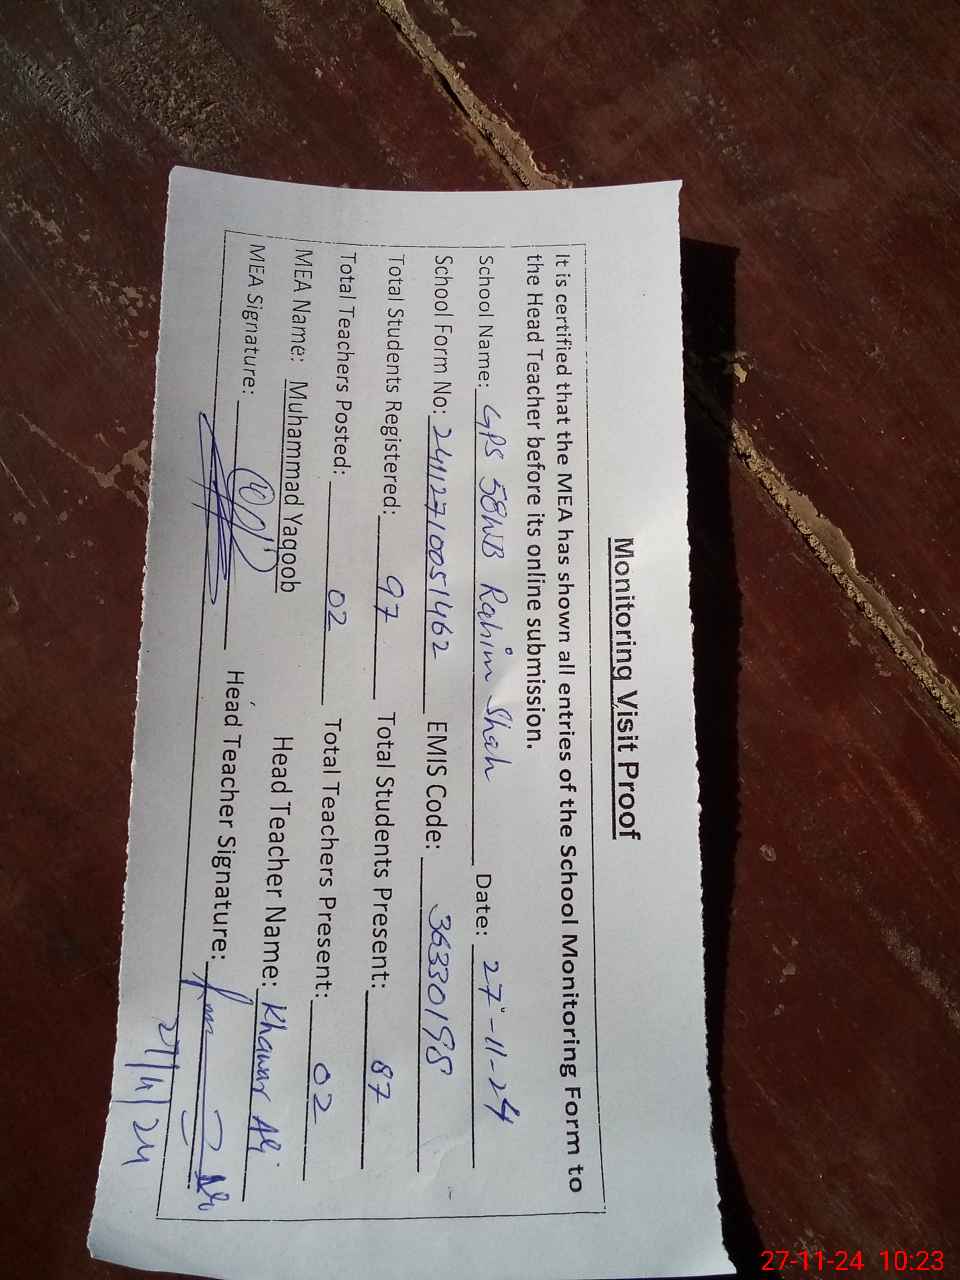 Monitoring Visit Proof
It is certified that the MEA has shown all entries of the School Monitoring Form to
the Head Teacher before its online submission.
School Name: GPS 58WB Rahim Shah Date: 27-11-24
School Form No: 24112710051462 EMIS Code: 36330198
Total Students Registered: 97 Total Students Present: 87
Total Teachers Posted: 02 Total Teachers Present: 02
MEA Name: Muhammad Yaqoob Head Teacher Name: Khawar Ali
MEA Signature: Head Teacher Signature:
27/11/24
27-11-24 10:23